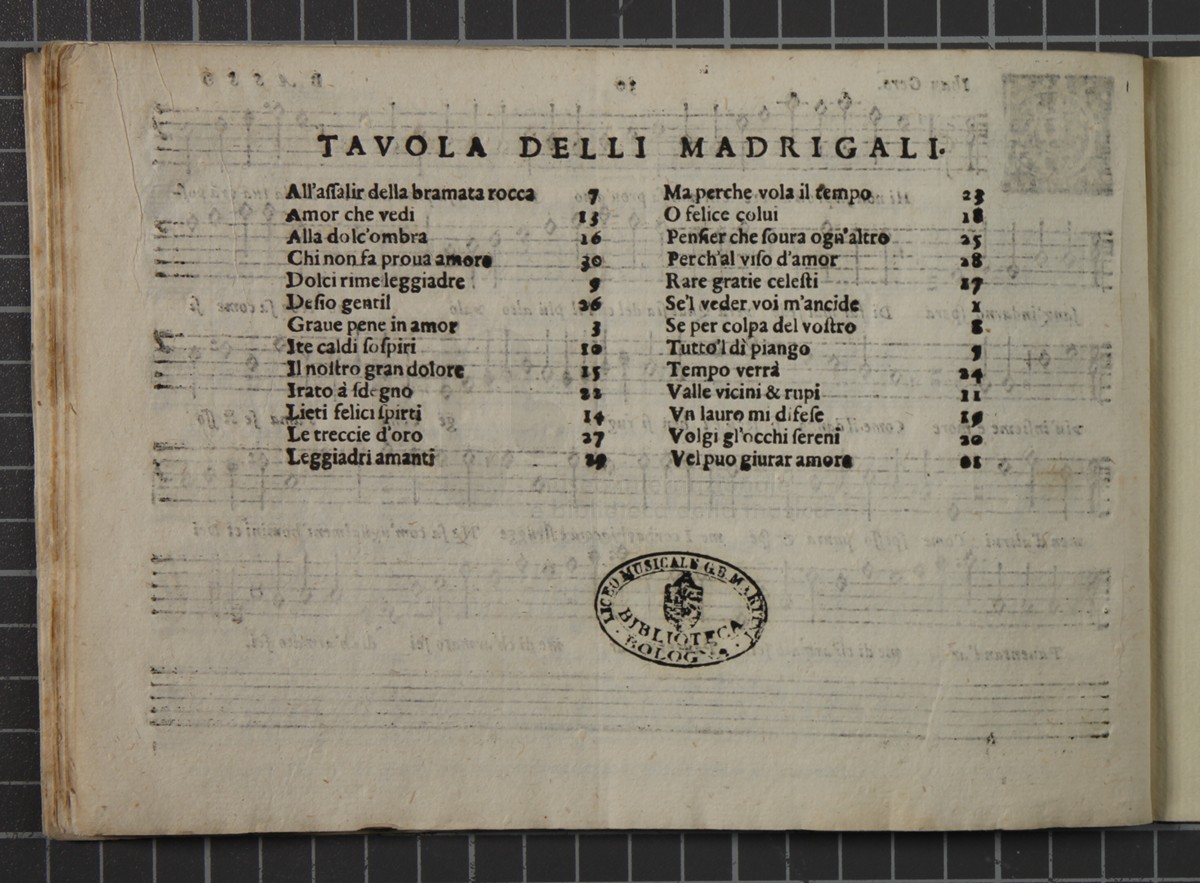 TAVOLA DELLI MADRIGALI.
All'aſſalir della bramata rocca 7
Amor che vedi 13
Alla dolc'ombra 16
Chi non fa proua amore 30
Dolci rime leggiadre 9
Deſio gentil 26
Graue pene in amor 3
Ite caldi ſoſpiri 10
Il noſtro gran dolore 15
Irato à ſdegno 22
Lieti felici ſpirti 14
Le treccie d'oro 27
Leggiadri amanti 29
Ma perche vola il tempo 23
O felice colui 18
Penſier che ſoura ogn'altro 25
Perch'al viſo d'amor 28
Rare gratie celeſti 17
Se'l veder voi m'ancide 1
Se per colpa del voſtro 8
Tutto'l dì piango 5
Tempo verrà 24
Valle vicini & rupi 11
Vn lauro mi difeſe 19
Volgi gl'occhi ſereni 20
Vel puo giurar amore 21
LICEO MUSICALE G.B. MARTINI
BIBLIOTECA
BOLOGNA